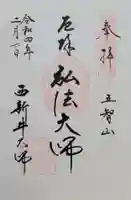 奉拝
五智山
厄除
弘法大師
西新井大師
令和四年
二月一日